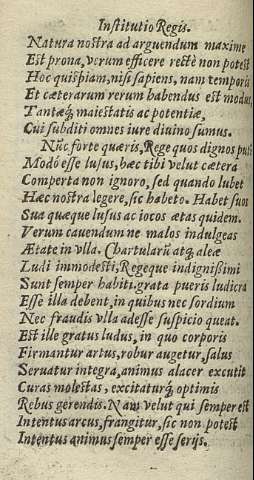 Institutio Regis.
Natura nostra ad arguendum maxime
Est prona, verum efficere rectè non potest
Hoc quispiam, nisi sapiens, nam temporis
Et cæterarum rerum habendus est modus,
Tantæq; maiestatis ac potentiæ,
Cui subditi omnes iure diuino sumus.
Nũc forte quæris, Rege quos dignos
Modò esse lusus, hæc tibi velut cætera
Comperta non ignoro, sed quando lubet
Hæc nostra legere, sic habeto. Habet suos
Sua quæque lusus ac iocos ætas quidem.
Verum cauendum ne malos indulgeas
Ætate in vlla. Chartularũ atq; aleæ
Ludi immodesti, Regeque indignißimi
Sunt semper habiti. grata pueris ludicra
Esse illa debent, in quibus nec sordium
Nec fraudis vlla adesse suspicio queat.
Est ille gratus ludus, in quo corporis
Firmantur artus, robur augetur, salus
Seruatur integra, animus alacer excutit
Curas molestas, excitaturq; optimis
Rebus gerendis. Nam velut qui semper est
Intentus arcus, frangitur, sic non potest
Intentus animus semper esse serijs.